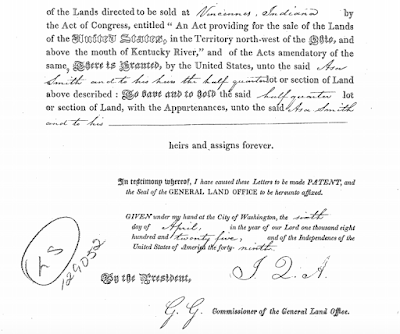 of the Lands directed to be sold at Vincennes, Indiana by
the Act of Congress, entitled "An Act providing for the sale of the Lands
of the United States, in the Territory north-west of the Ohio, and
above the mouth of Kentucky River," and of the Acts amendatory of the
same, There is Granted, by the United States, unto the said Asa
Smith and to his heirs the half quarter lot or section of Land
above described: To have and to hold the said half quarter lot
or section of Land, with the Appurtenances, unto the said Asa Smith
and to his
heirs and assigns forever.
In testimony whereof, I have caused these Letters to be made PATENT, and
the Seal of the GENERAL LAND OFFICE to be hereunto affixed.
GIVEN under my hand at the City of Washington, the sixth
day of April, in the year of our Lord one thousand eight
hundred and twenty five, and of the Independence of the
United States of America the forty-ninth
LS
129052
By the President, J. Q. A.
G. G. Commissioner of the General Land Office.